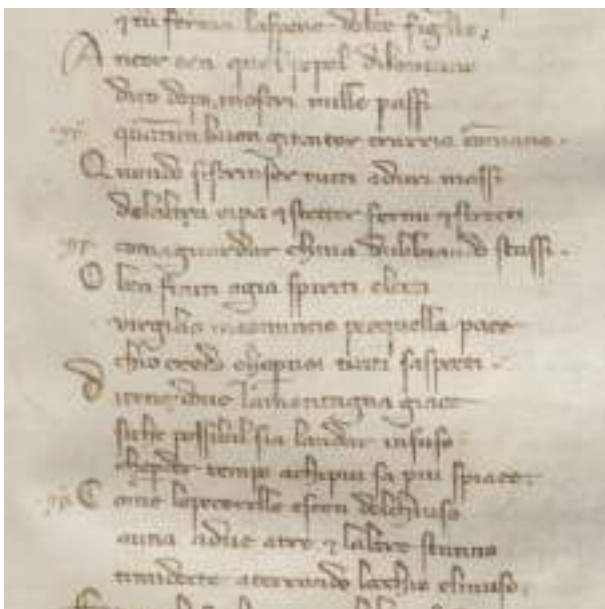 ⁊ tu ferma laspene dolce figlio.
Ancor era quel popol dilontano
dico dopo inostri mille passi
quantun buon gitator trarria cōmano.
Quando sistrinser tutti aduri massi
delalta ripa ⁊ stetter fermi ⁊ stretti
comaguardar chiua dubbiando stassi.
O ben finiti ogia spiriti eletti
virgilio incomincio perquella pace
chio credo cheperuoi tutti saspetti.
Ditene doue lamontagna giace
siche possibil sia landar insuso
cheperder tempo achipiu sa piu spiace.
Come lepecorelle escon delchiuso
auna adue atre ⁊ laltre stanno
timidette aterrando lochio elmuso.